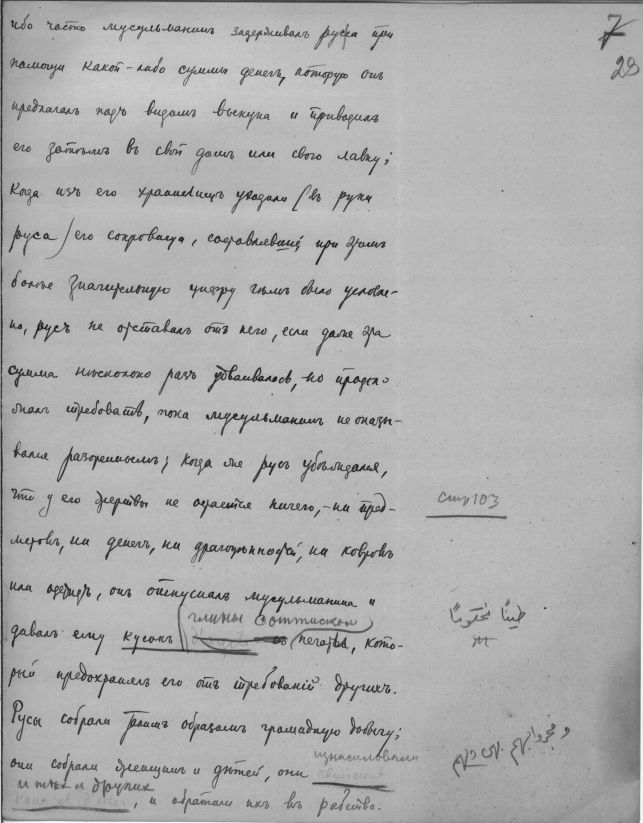 7
23
ибо часто мусульманинъ задерживалъ русса при
помощи какой-либо суммы денегъ, которую онъ
предлагалъ подъ видомъ выкупа и приводилъ
его затѣмъ въ свой домъ или свою лавку;
Когда изъ его хранилищъ уходили (въ руки
руса) его сокровища, составлявшія при этомъ
болѣе значительную цифру чѣмъ было условле-
но, русъ не отставалъ отъ него, если даже эта
сумма нѣсколько разъ удваивалось, но продол-
жалъ требовать, пока мусульманинъ не оказы-
вался разореннымъ; когда же русъ убѣждался,
что у его жертвы не остается ничего, - ни пред-
метовъ, ни денегъ, ни драгоцѣнностей, ни ковровъ
стр 103
или одеждъ, онъ отпускалъ мусульманина и
глины с оттискомъ
طينًا مختومًا
давалъ ему кусокъ печати, кото-
рый предохранялъ его отъ требованій другихъ.
Русы собрали такимъ образомъ громадную добычу;
изнасиловали
они собрали женщинъ и дѣтей, они
و فجروا بهن
и тѣхъ и другихъ
, и обратили ихъ въ рабство.